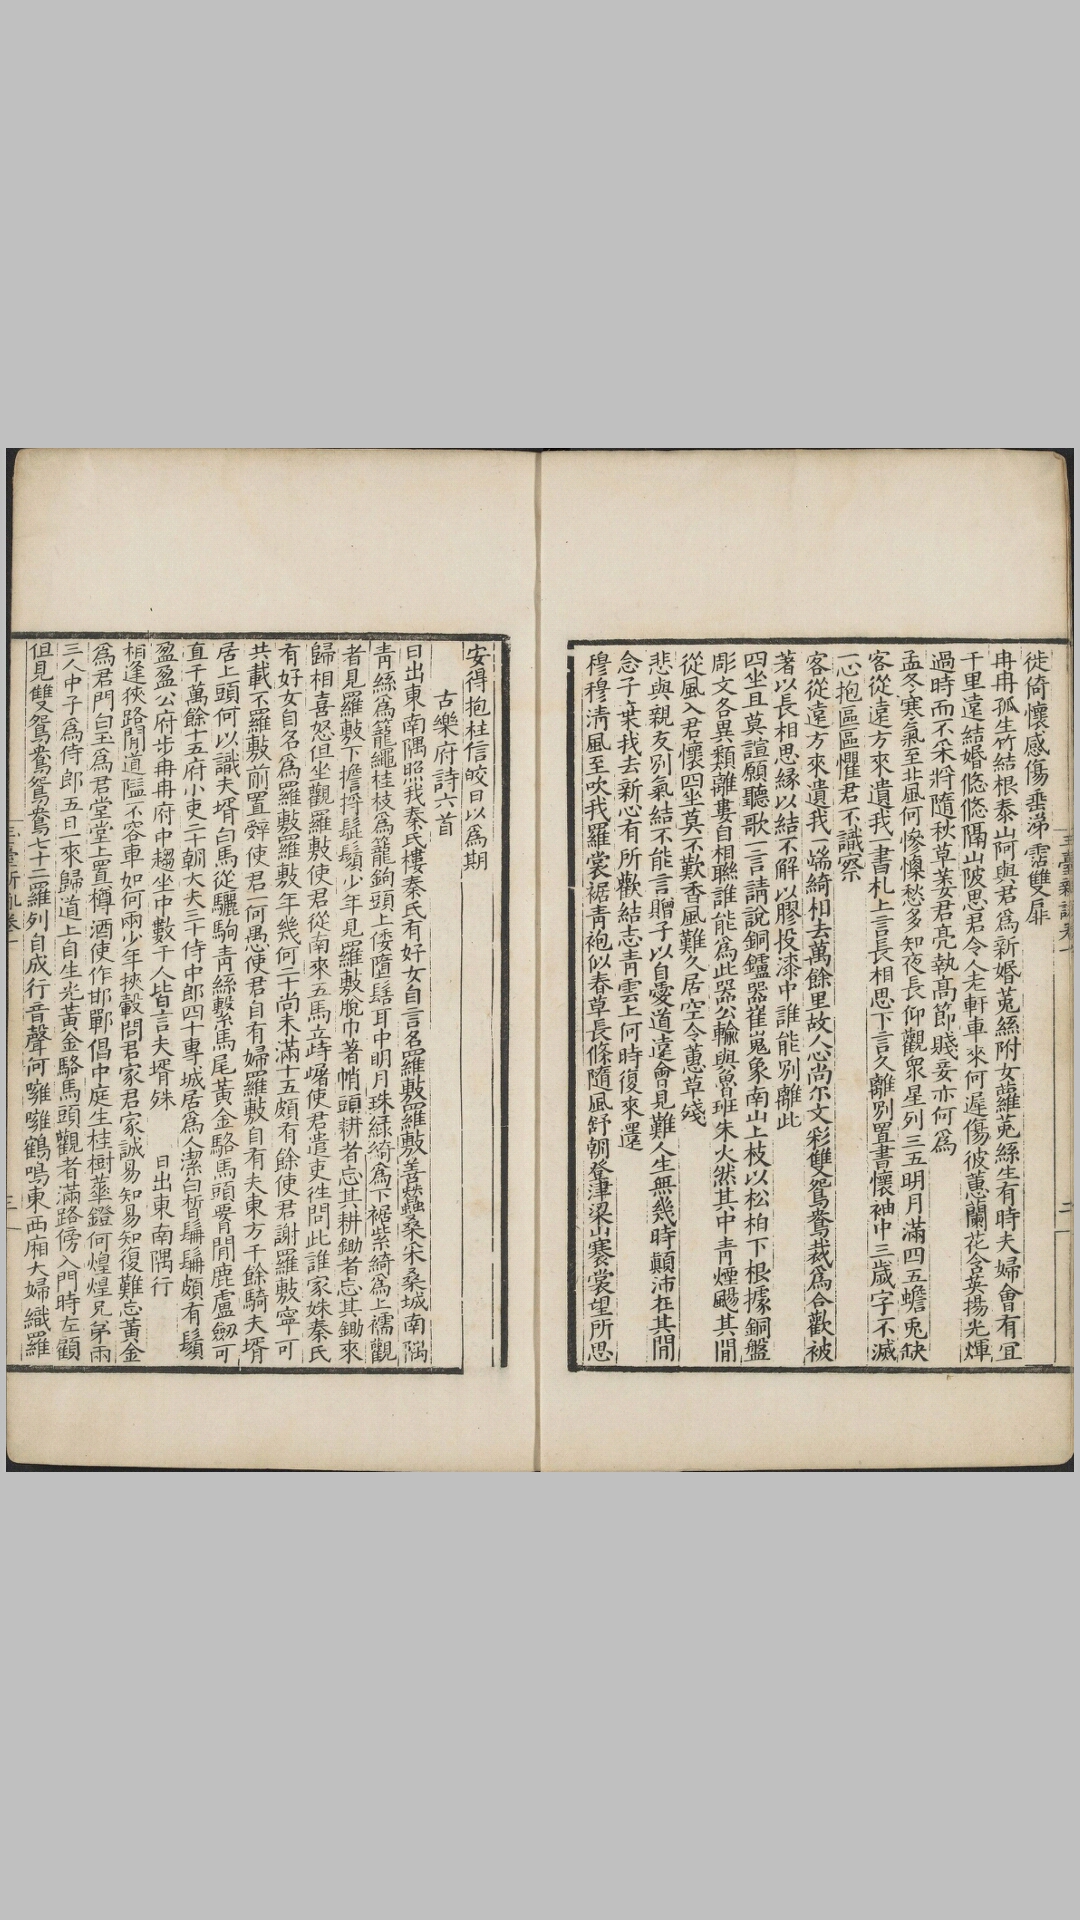 徙倚懷感傷垂涕霑雙扉
冉冉孤生竹結根泰山阿與君爲新婚菟絲附女蘿菟絲生有時夫婦會有宜
千里遠結婚悠悠隔山陂思君令人老軒車來何遲傷彼蕙蘭花含英揚光煇
過時而不采將隨秋草萎君亮執高節賤妾亦何爲
孟冬寒氣至北風何慘懍愁多知夜長仰觀眾星列三五明月滿四五蟾兔缺
客從遠方來遺我一書札上言長相思下言久離别置書懷袖中三歲字不滅
一心抱區區懼君不識察
客從遠方來遺我一端綺相去萬餘里故人心尚尔文彩雙鴛鴦裁爲合歡被
著以長相思緣以結不解以膠投漆中誰能别離此
四坐且莫諠願聽歌一言請說銅鑪器崔嵬象南山上枝以松柏下根據銅盤
彫文各異類離婁自相聯誰能爲此器公輸與魯班朱火然其中青煙颺其閒
從風入君懷四坐莫不歎香風難久居空令蕙草殘
悲與親友别氣結不能言贈子以自愛道遠會見難人生無幾時顛沛在其閒
念子棄我去新心有所歡結志青雲上何時復來還
穆穆淸風至吹我羅裳裾青袍似春草長條隨風舒朝登津梁山褰裳望所思
安得抱柱信皎日以爲期
古樂府詩六首
日出東南隅照我秦氏樓秦氏有好女自言名羅敷羅敷善蠶桑采桑城南隅
青絲爲籠繩桂枝爲籠鉤頭上倭墮髻耳中明月珠綠綺爲下裾紫綺爲上襦觀
者見羅敷下擔捋髭鬚少年見羅敷脫巾著帩頭耕者忘其耕鋤者忘其鋤來
歸相喜怒但坐觀羅敷使君從南來五馬立峙𡹘使君遣吏往問此誰家姝秦氏
有好女自名爲羅敷羅敷年幾何二十尚未滿十五頗有餘使君謝羅敷寧可
共載不羅敷前置辭使君一何愚使君自有婦羅敷自有夫東方千餘騎夫壻
居上頭何以識夫壻白馬從驪駒青絲繫馬尾黃金駱馬頭𦝫閒鹿盧劒可
直千萬餘十五府小吏二十朝大夫三十侍中郎四十專城居爲人潔白晳鬑鬑頗有鬚
盈盈公府步冉冉府中趨坐中數千人皆言夫壻殊　日出東南隅行
相逢狹路閒道隘不容車如何兩少年挾轂問君家君家誠易知易知復難忘黃金
爲君門白玉爲君堂堂上置樽酒使作邯鄲倡中庭生桂樹華鐙何煌煌兄弟兩
三人中子爲侍郎五日一來歸道上自生光黃金駱馬頭觀者滿路傍入門時左顧
但見雙鴛鴦鴛鴦七十二羅列自成行音聲何噰噰鶴鳴東西廂大婦織羅